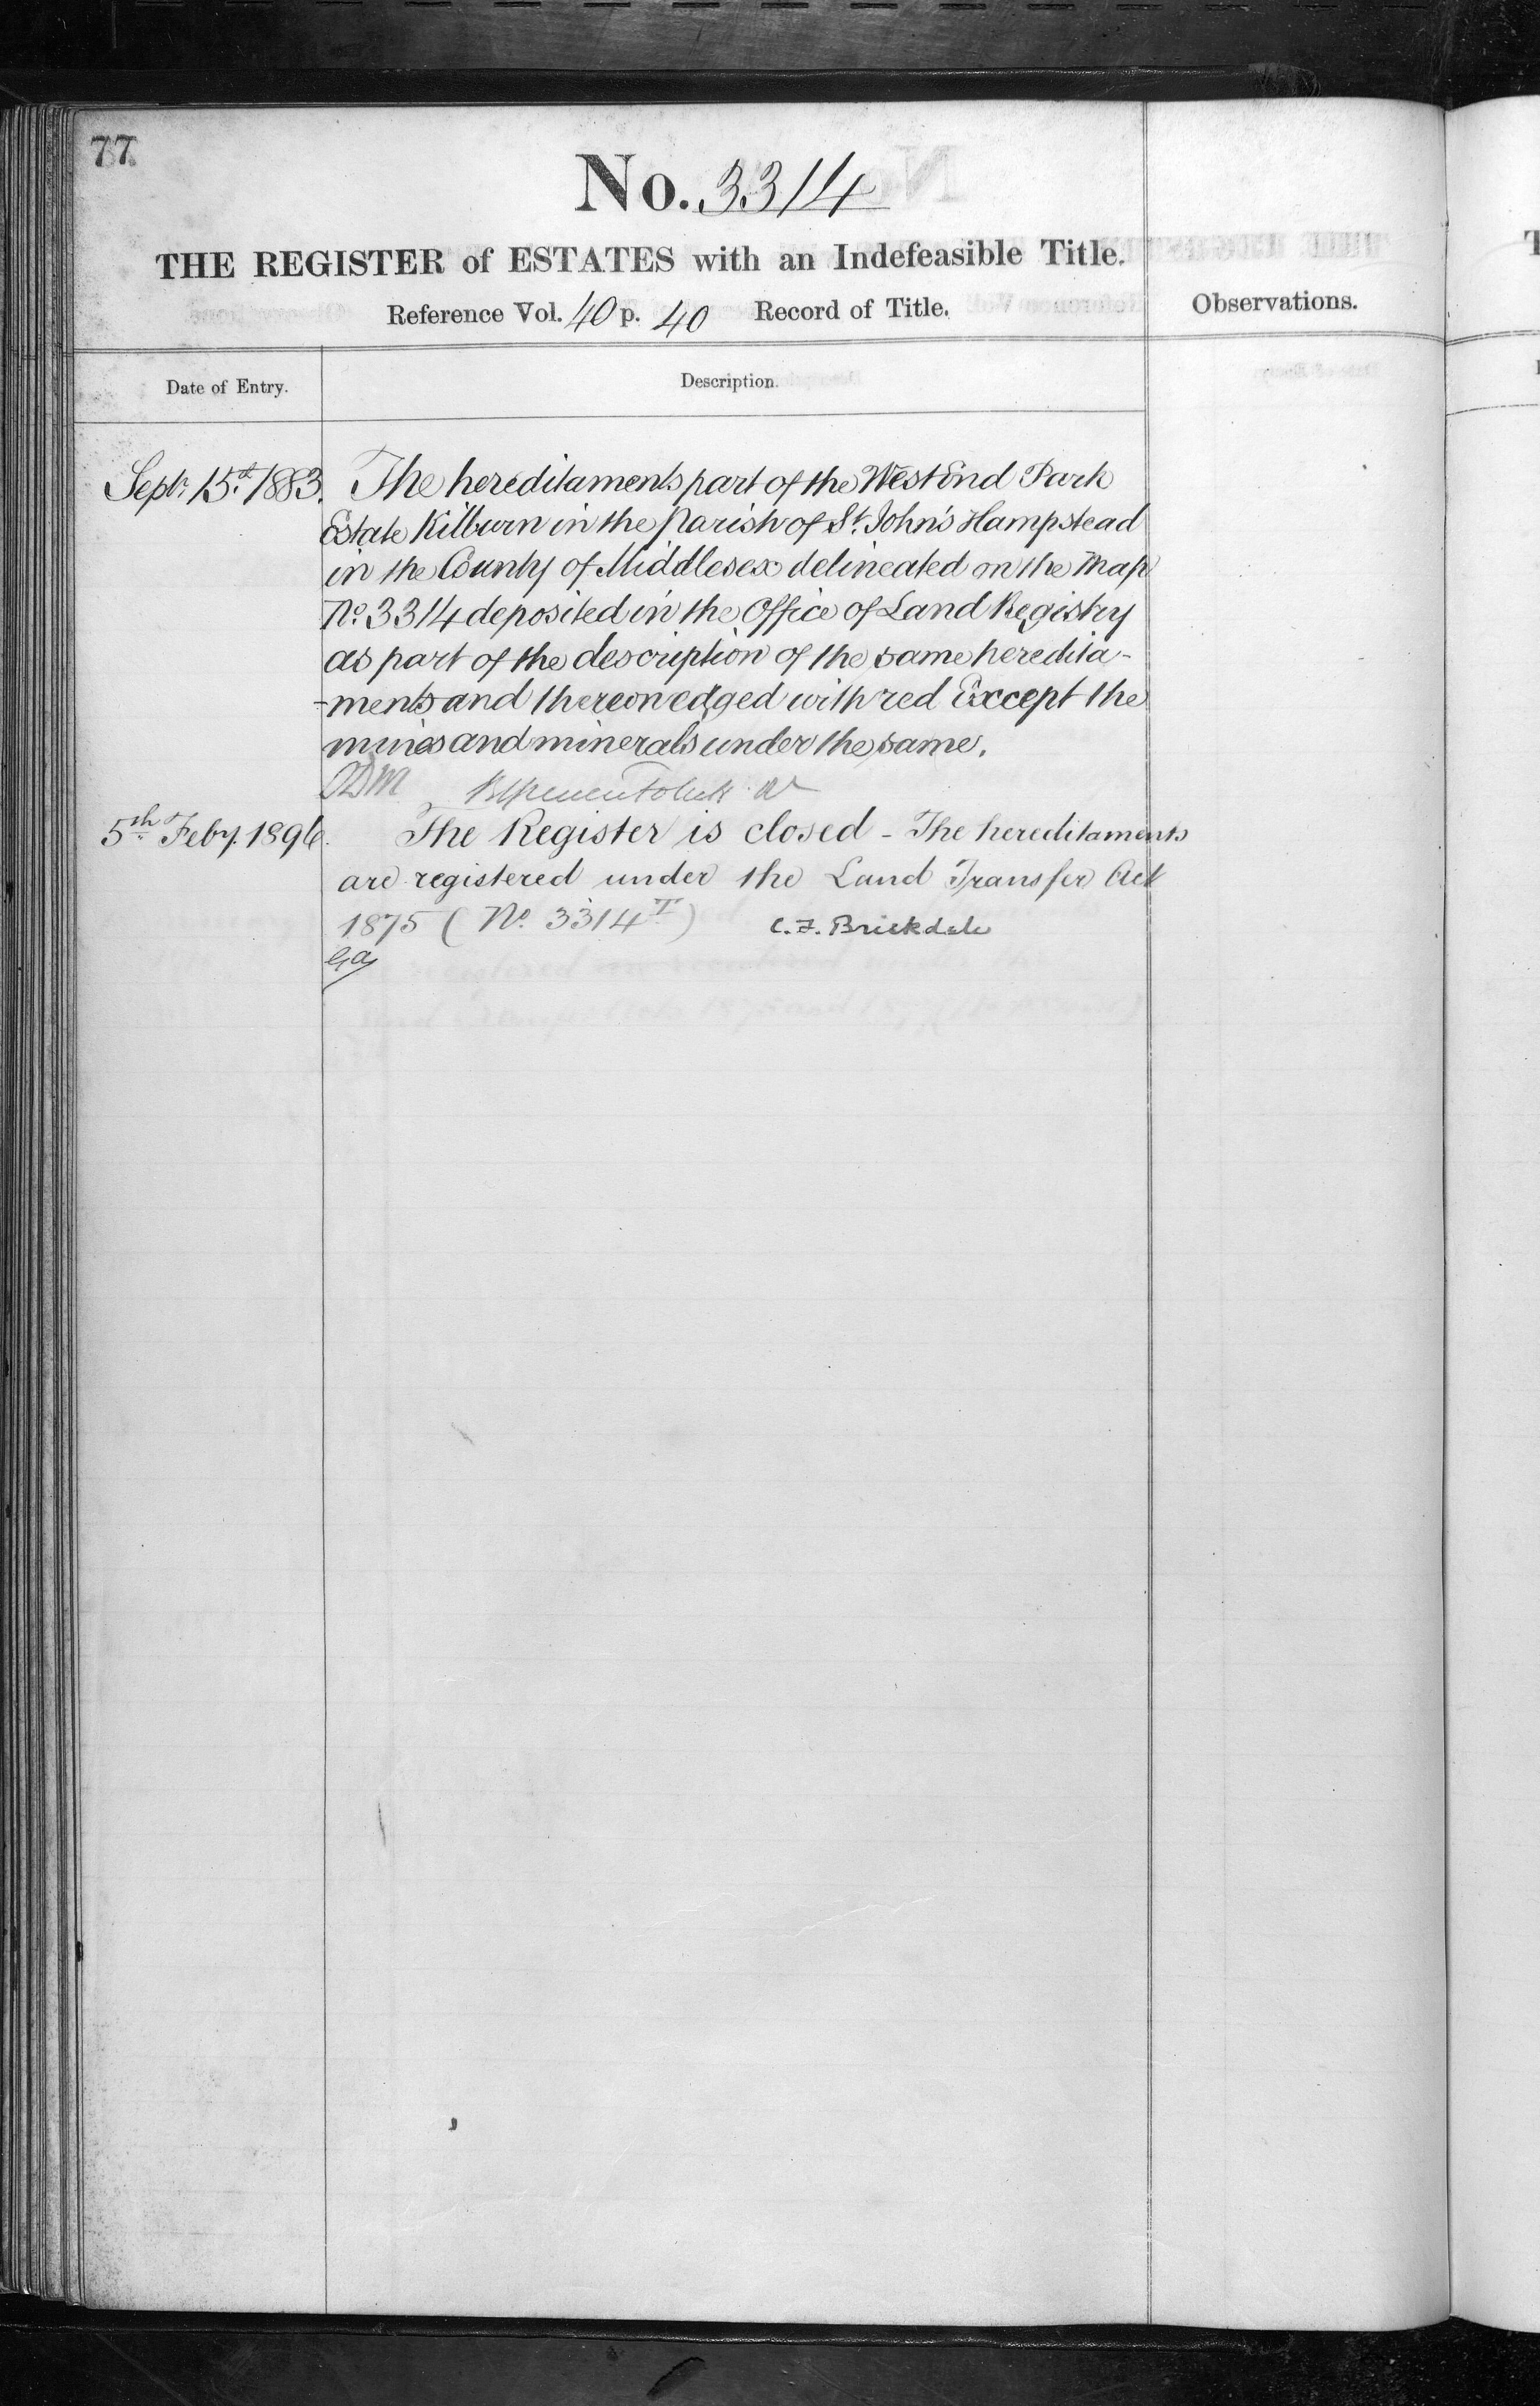 77
No. 3314
THE REGISTER of ESTATES with an Indefeasible Title.
Reference Vol. 40 p. 40 Record of Title.
Observations.
Date of Entry.
Description.
Sept. 15th 1883. The hereditaments part of the West End Park
Estate Kilburn in the Parish of St. John's Hampstead
in the County of Middlesex delineated on the Map
No. 3314 deposited in the Office of Land Registry
as part of the description of the same heredita-
-ments and thereon edged with red Except the
mines and minerals under the same.
5th Feby. 1896. The Register is closed - The hereditaments
are registered under the Land Transfer Act
1875 (No. 3314 T) C. F. Brickdale